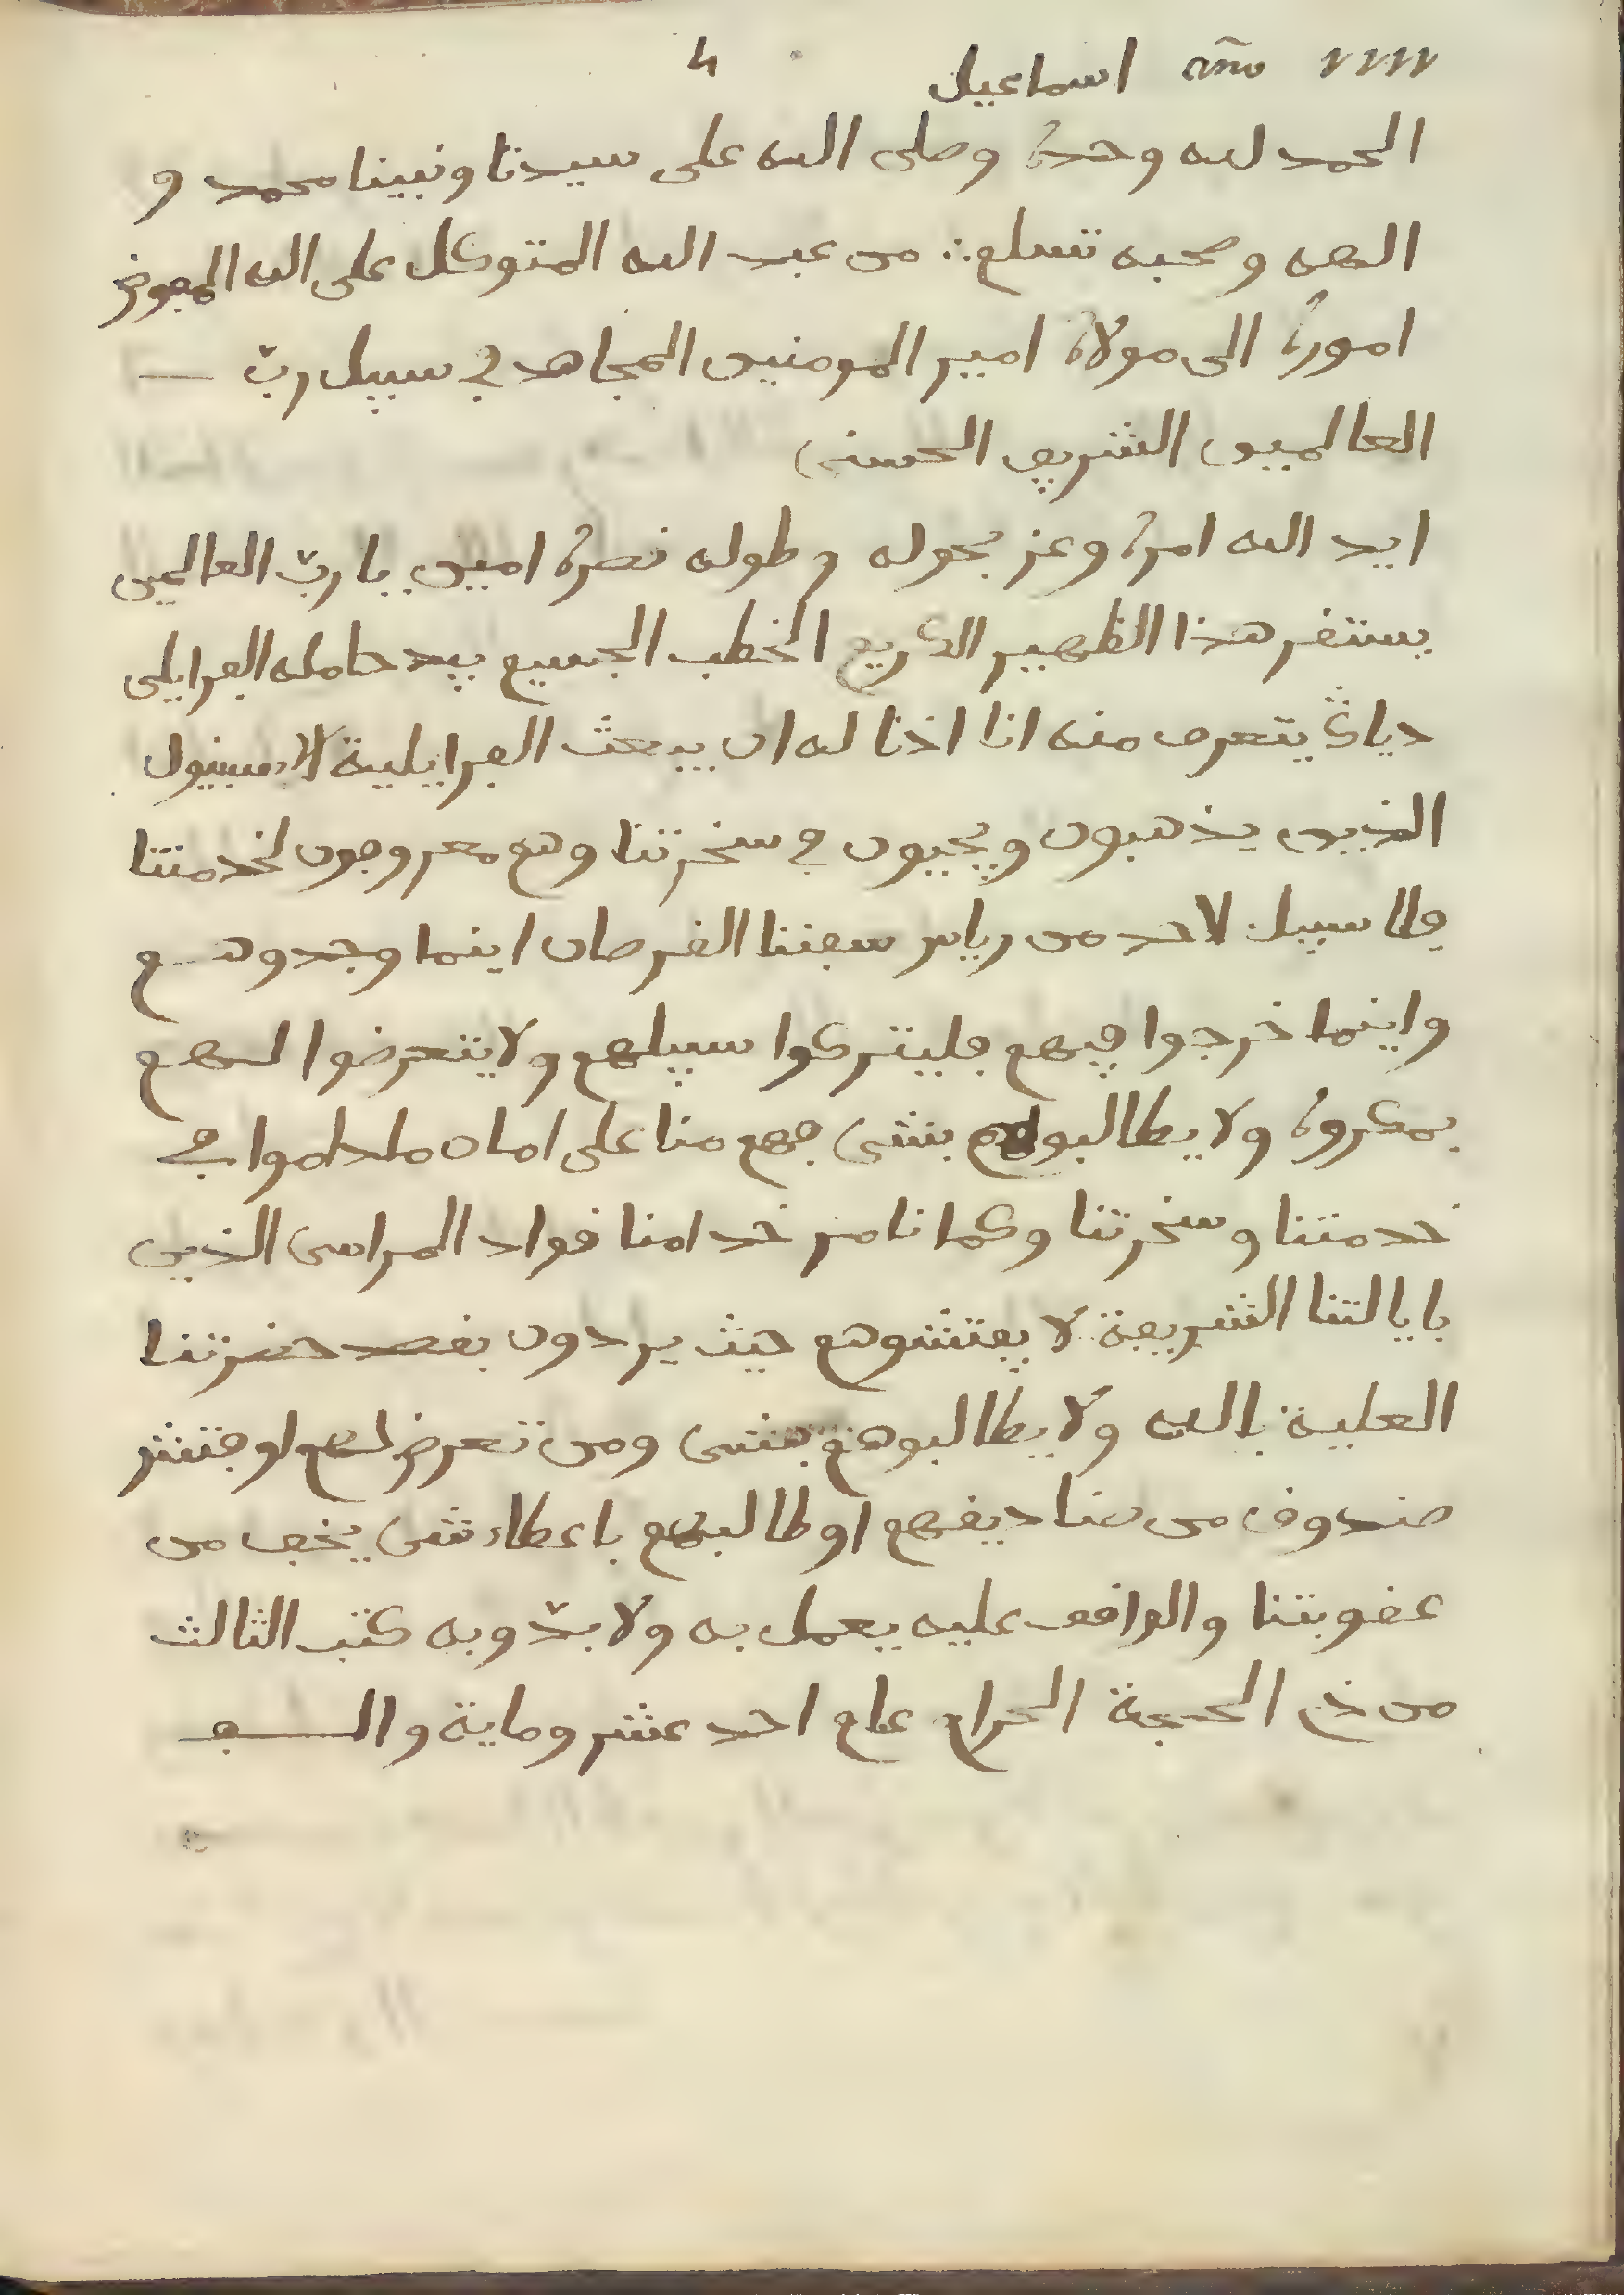 اسماعيل año 1111 4
الحمد لله وحده وصلى الله على سيدنا ونبينا محمد و
الهه وصحبه تسلم ∴ من عبد الله المتوكل على الله المفوض
اموره الى مولاه امير المومنين المجاهد في سبيل ربّ
العالميين الشريف الحسنى
ايد الله امره وعز بحوله وطوله نصره اميين يا ربّ العالمين
يستقر هذا الظهير الكريم الخطب الجسيم بيد حامله الفرايلى
دياڭ يتعرف منه انا اذنا له ان يبعث الفرايلية لاسبنيول
الذيين يذهبون ويجيون في سخرتنا وهم معروفون لخدمتنا
فلا سبيل لاحد من رياس سفننا القرصان اينما وجدوهم
واينما خرجوا فيهم فليتركوا سبيلهم ولا يتعرضوا لهم
بمكروه ولا يطالبوهم بشى فهم منا على امان ماداموا في
خدمتنا وسخرتنا وكما نامر خدامنا قواد المراسى الذين
بايالتنا الشريفة لا يفتشوهم حيث يردون بقصد حضرتنا
العلية بالله ولا يطالبوهم بشى ومن تعرض لهم او فتش
صندوق من صناديقهم او طالبهم باعطاء شى يخف من
عقوبتنا والواقف عليه يعمل به ولا بدّ وبه كتب الثالث
من ذى الحجة الحرام عام احد عشر وماية والف